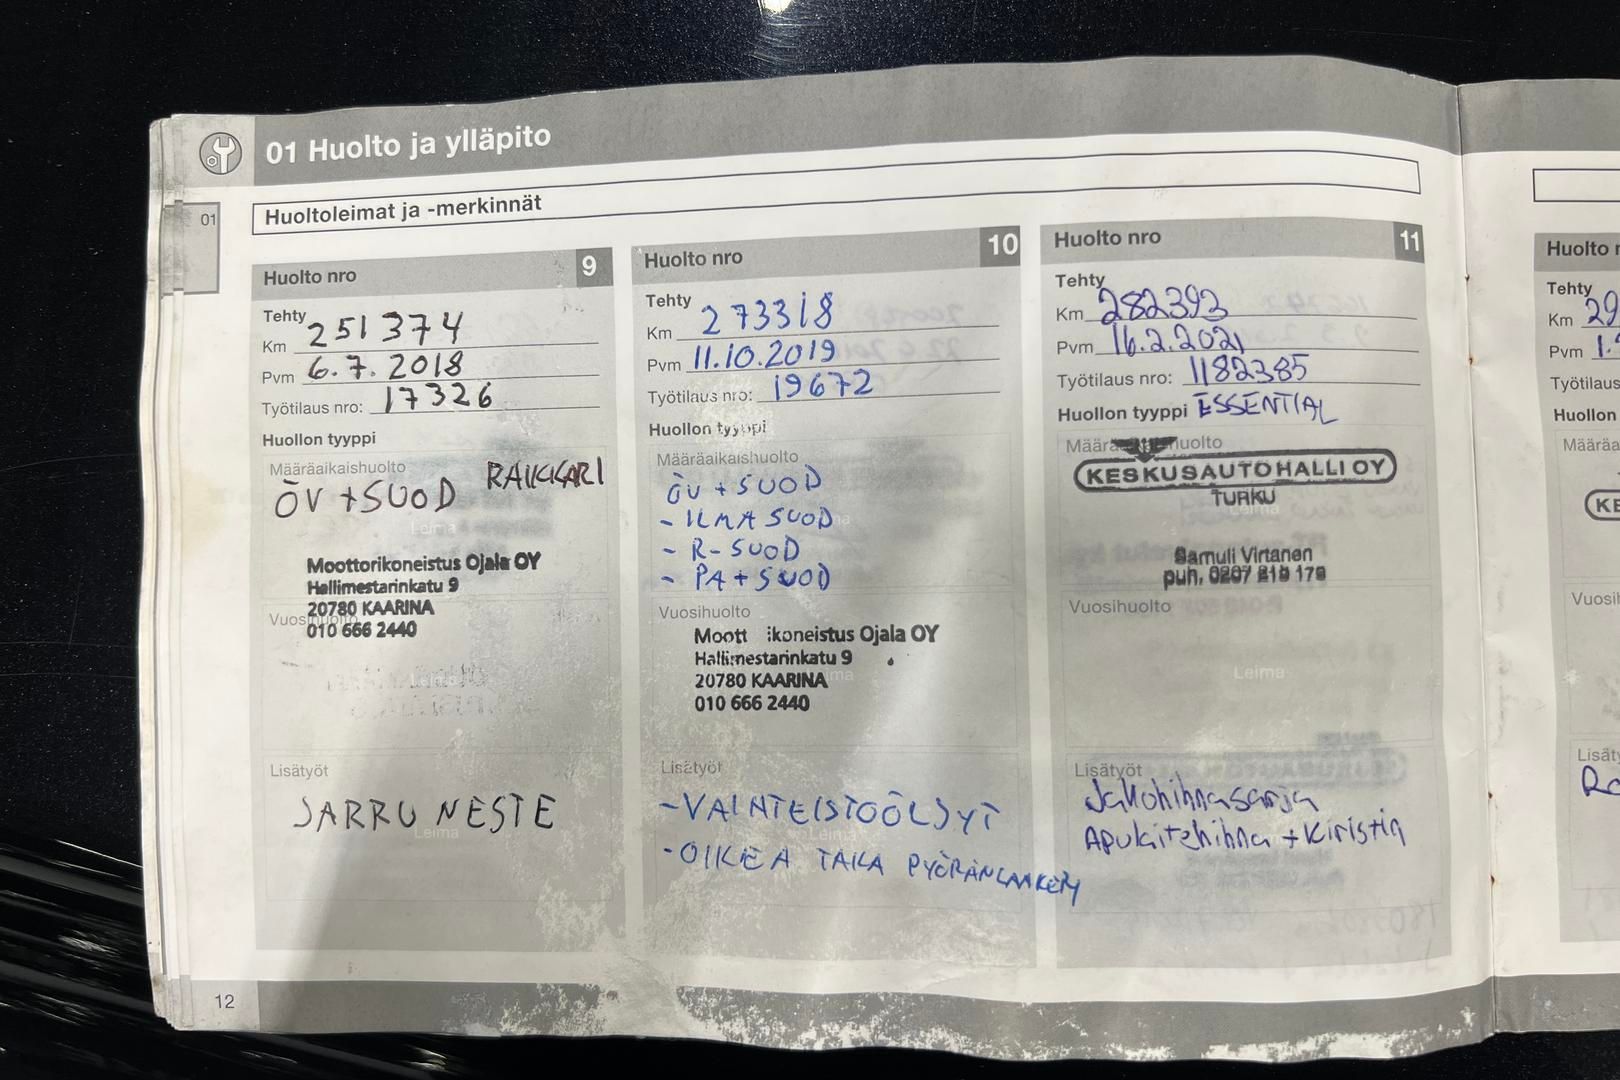 01 Huolto ja ylläpito
01
Huoltoleimat ja -merkinnät
Huolto nro 9
Tehty
Km 251 374
Pvm 6.7.2018
Työtilaus nro: 17326
Huollon tyyppi
Määräaikaishuolto RAIKKARI
ÖV + SUOD
Leima
Moottorikoneistus Ojala OY
Hallimestarinkatu 9
20780 KAARINA
Vuosihuolto
010 666 2440
Leima
Lisätyöt
JARRU NESTE
Leima
Huolto nro 10
Tehty
Km 273318
Pvm 11.10.2019
Työtilaus nro: 19672
Huollon tyyppi
Määräaikaishuolto
ÖV + SUOD
- ILMA SUOD
- R- SUOD
- PA + SUOD
Vuosihuolto
Moott ikoneistus Ojala OY
Hallimestarinkatu 9
20780 KAARINA
010 666 2440
Lisätyöt
- VAIHTEISTOÖLJYT
Leima
- OIKEA TAKA PYÖRÄNLAAKERI
Huolto nro 11
Tehty
Km 282393
Pvm 16.2.2021
Työtilaus nro: 1182385
Huollon tyyppi ESSENTIAL
KESKUSAUTOHALLI OY
TURKU
Leima
Samuli Virtanen
puh. 0207 219 179
Vuosihuolto
Leima
Lisätyöt
Jakohihnasarja
Apulaitehihna + Kiristin
12
Huolto
Tehty
Km 29
Pvm 1.
Työtilaus
Huollon
KE